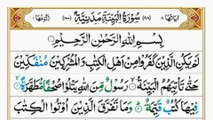 سُوْرَةُ الْبَيِّنَةِ مَدَنِيَّةٌ
بِسْمِ اللّٰهِ الرَّحْمٰنِ الرَّحِيْمِ
لَمْ يَكُنِ الَّذِيْنَ كَفَرُوْا مِنْ اَهْلِ الْكِتٰبِ وَالْمُشْرِكِيْنَ مُنْفَكِّيْنَ
حَتّٰى تَاْتِيَهُمُ الْبَيِّنَةُ ۙ رَسُوْلٌ مِّنَ اللّٰهِ يَتْلُوْا صُحُفًا مُّطَهَّرَةً ۙ
فِيْهَا كُتُبٌ قَيِّمَةٌ ؕ وَمَا تَفَرَّقَ الَّذِيْنَ اُوْتُوا الْكِتٰبَ